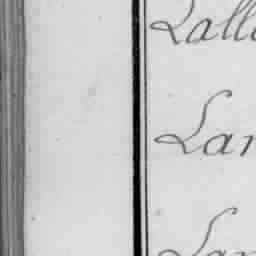 Lall
Lan
Lan